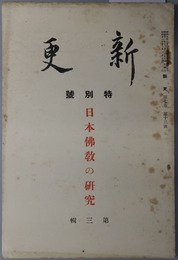 新更
特別號
日本佛敎の硏究
第三輯